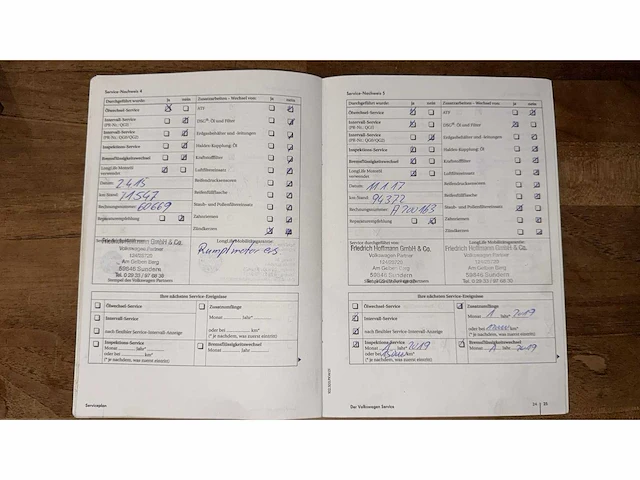 Service-Nachweis 4
Durchgeführt wurde: ja nein
Zusatzarbeiten - Wechsel von: ja nein
Ölwechsel-Service
ATF
Intervall-Service
(PR-Nr.: QG1)
DSG®-Öl und Filter
Intervall-Service
(PR-Nr.: QG0/QG2)
Erdgasbehälter und -leitungen
Inspektions-Service
Haldex-Kupplung: Öl
Bremsflüssigkeitswechsel
Kraftstofffilter
LongLife Motoröl
verwendet
Luftfiltereinsatz
Datum:
Reifendrucksensoren
km-Stand: 71547
Reifenfüllflasche
Rechnungsnummer: 60669
Staub- und Pollenfiltereinsatz
Reparaturempfehlung
Zahnriemen
Zündkerzen
Friedrich Hoffmann GmbH & Co.
Volkswagen Partner
Am Gelben Berg
59846 Sundern
Tel. 0 29 33 / 97 68 30
Stempel des Volkswagen Partners
LongLife Mobilitätsgarantie:
Rumpfmotor
Ihre nächsten Service-Ereignisse
Ölwechsel-Service
Intervall-Service
nach flexibler Service-Intervall-Anzeige
Inspektions-Service
Monat Jahr*
oder bei km*
(* je nachdem, was zuerst eintritt)
Zusatzumfänge
Monat Jahr*
oder bei km*
(* je nachdem, was zuerst eintritt)
Bremsflüssigkeitswechsel
Monat Jahr
Serviceplan
Service-Nachweis 5
Durchgeführt wurde: ja nein
Zusatzarbeiten - Wechsel von: ja nein
Ölwechsel-Service
ATF
Intervall-Service
(PR-Nr.: QG1)
DSG®-Öl und Filter
Intervall-Service
(PR-Nr.: QG0/QG2)
Erdgasbehälter und -leitungen
Inspektions-Service
Haldex-Kupplung: Öl
Bremsflüssigkeitswechsel
Kraftstofffilter
LongLife Motoröl
verwendet
Luftfiltereinsatz
Datum: 11.1.17
Reifendrucksensoren
km-Stand: 94372
Reifenfüllflasche
Rechnungsnummer: A200163
Staub- und Pollenfiltereinsatz
Reparaturempfehlung
Zahnriemen
Zündkerzen
Service durchgeführt von:
Friedrich Hoffmann GmbH & Co.
Volkswagen Partner
Am Gelben Berg
59846 Sundern
Tel. 0 29 33 / 97 68 30
LongLife Mobilitätsgarantie:
Friedrich Hoffmann GmbH & Co.
Volkswagen Partner
Am Gelben Berg
59846 Sundern
Tel. 0 29 33 / 97 68 30
Ihre nächsten Service-Ereignisse
Ölwechsel-Service
Intervall-Service
nach flexibler Service-Intervall-Anzeige
Inspektions-Service
Monat Jahr* 2019
oder bei km*
(* je nachdem, was zuerst eintritt)
Zusatzumfänge
Monat 1 Jahr* 2019
oder bei km*
(* je nachdem, was zuerst eintritt)
Bremsflüssigkeitswechsel
Monat 1 Jahr 2019
Das Volkswagen Service
34 35